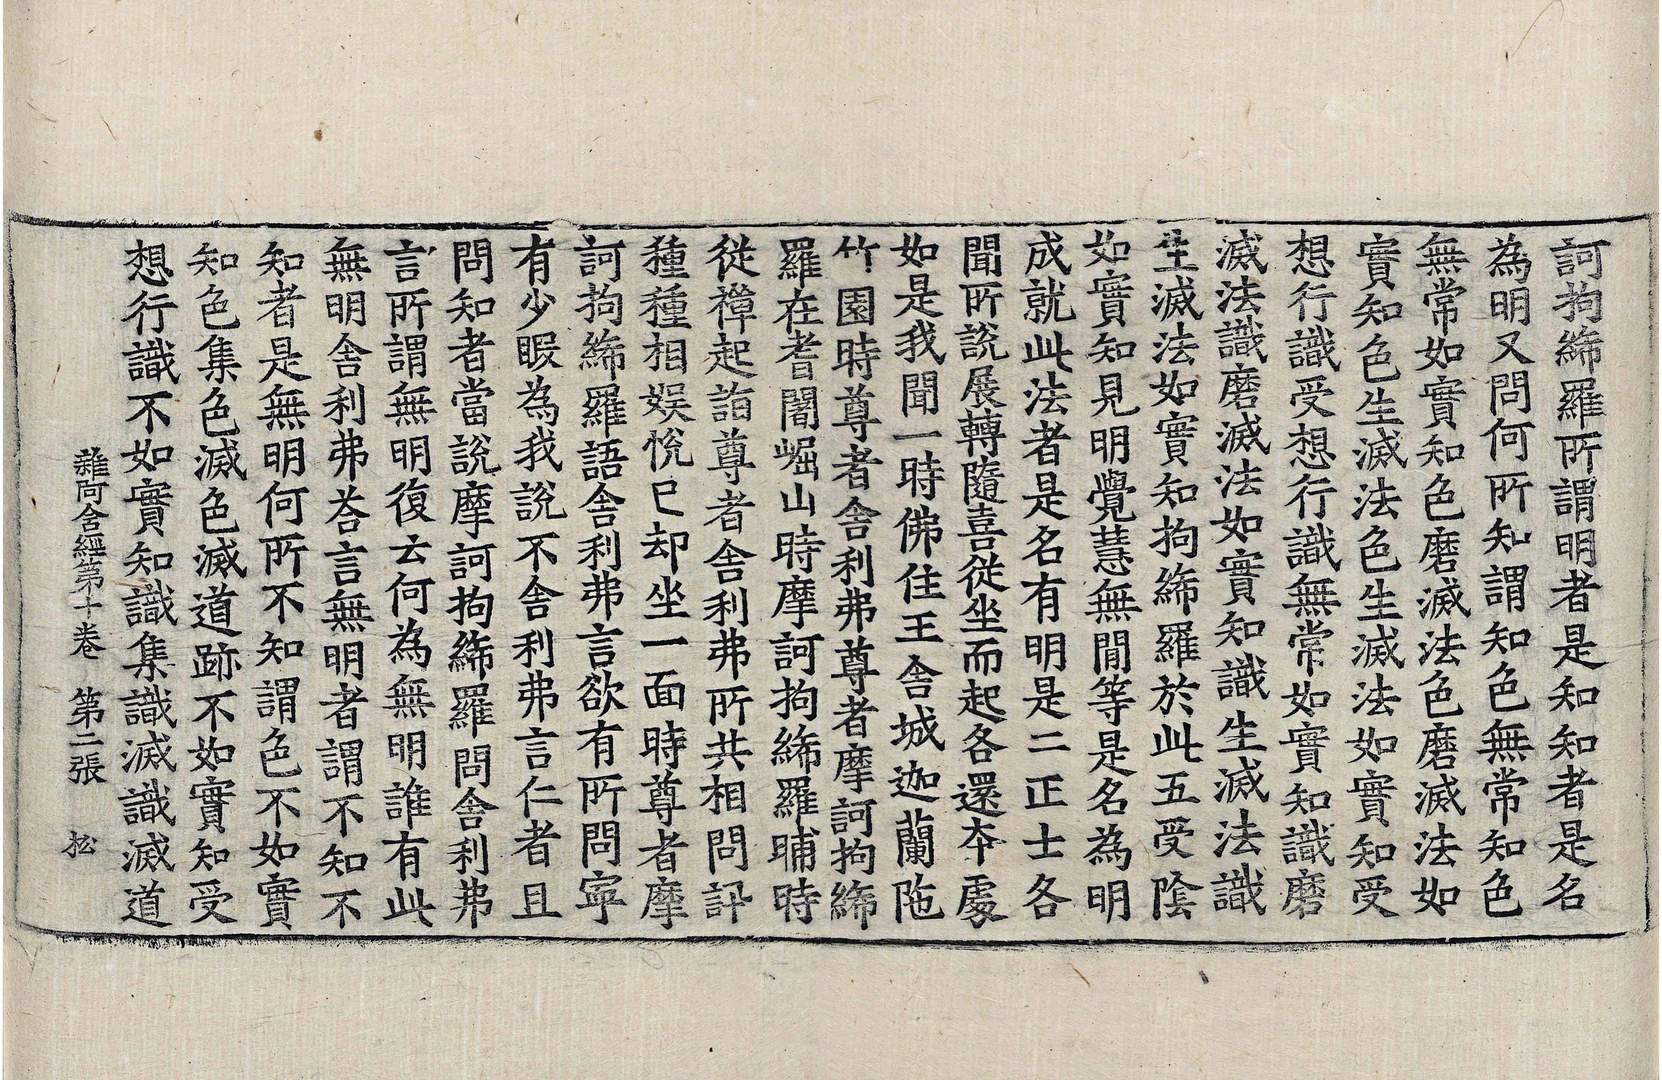 訶拘絺羅所謂明者是知知者是名
為明又問何所知謂知色無常知色
無常如實知色磨滅法色磨滅法如
實知色生滅法色生滅法如實知受
想行識受想行識無常如實知識磨
滅法識磨滅法如實知識生滅法識
生滅法如實知拘絺羅於此五受陰
如實知見明覺慧無閒等是名為明
成就此法者是名有明是二正士各
聞所說展轉隨喜從坐而起各還本處
如是我聞一時佛住王舍城迦蘭陁
竹園時尊者舍利弗尊者摩訶拘絺
羅在耆闍崛山時摩訶拘絺羅晡時
從禪起詣尊者舍利弗所共相問訊
種種相娛悅已却坐一面時尊者摩
訶拘絺羅語舍利弗言欲有所問寧
有少暇為我說不舍利弗言仁者且
問知者當說摩訶拘絺羅問舍利弗
言所謂無明復云何為無明誰有此
無明舍利弗荅言無明者謂不知不
知者是無明何所不知謂色不如實
知色集色滅色滅道跡不如實知受
想行識不如實知識集識滅識滅道
雜阿含經第十卷 第二張 松